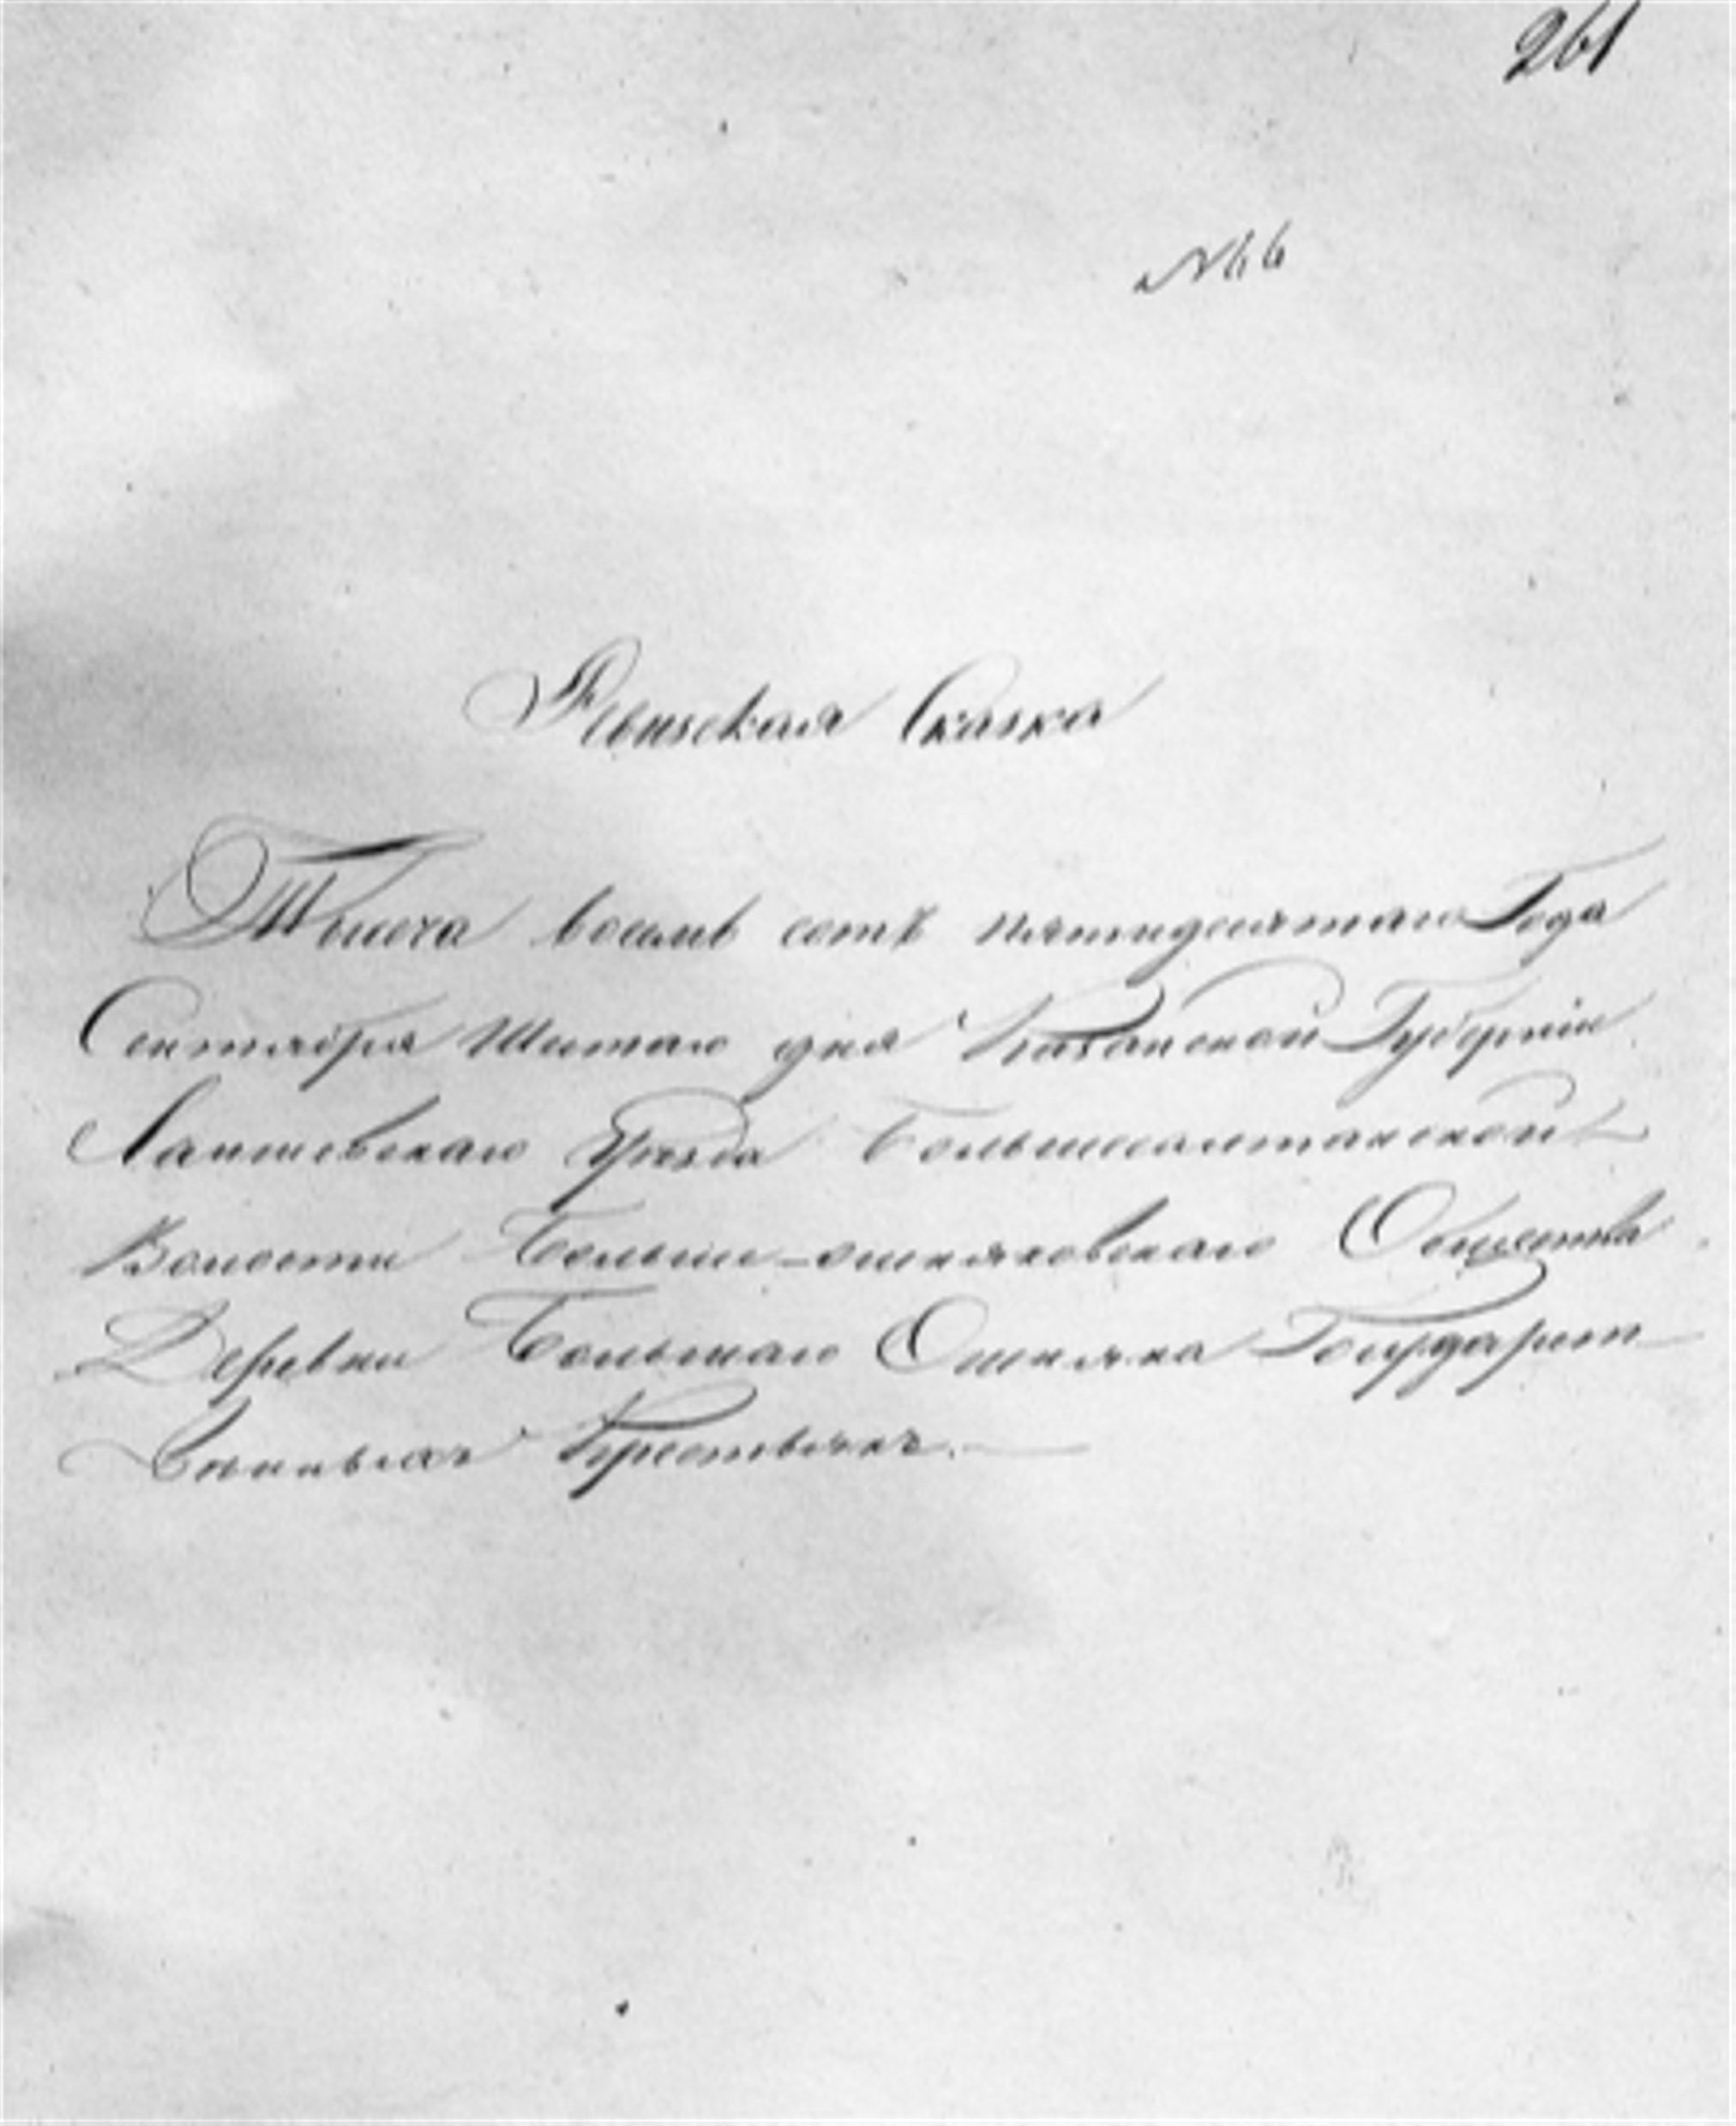 261
№ 6
Ревизская Сказка
Тысяча восемь сотъ пятидесятаго Года
Сентября Шестаго дня Казанской Губерніи
Лаишевскаго Уѣзда Большесалтанской
Волости Больше-ошняковскаго Общества
Деревни Большаго Ошняка Государст-
венныхъ Крестьянъ.